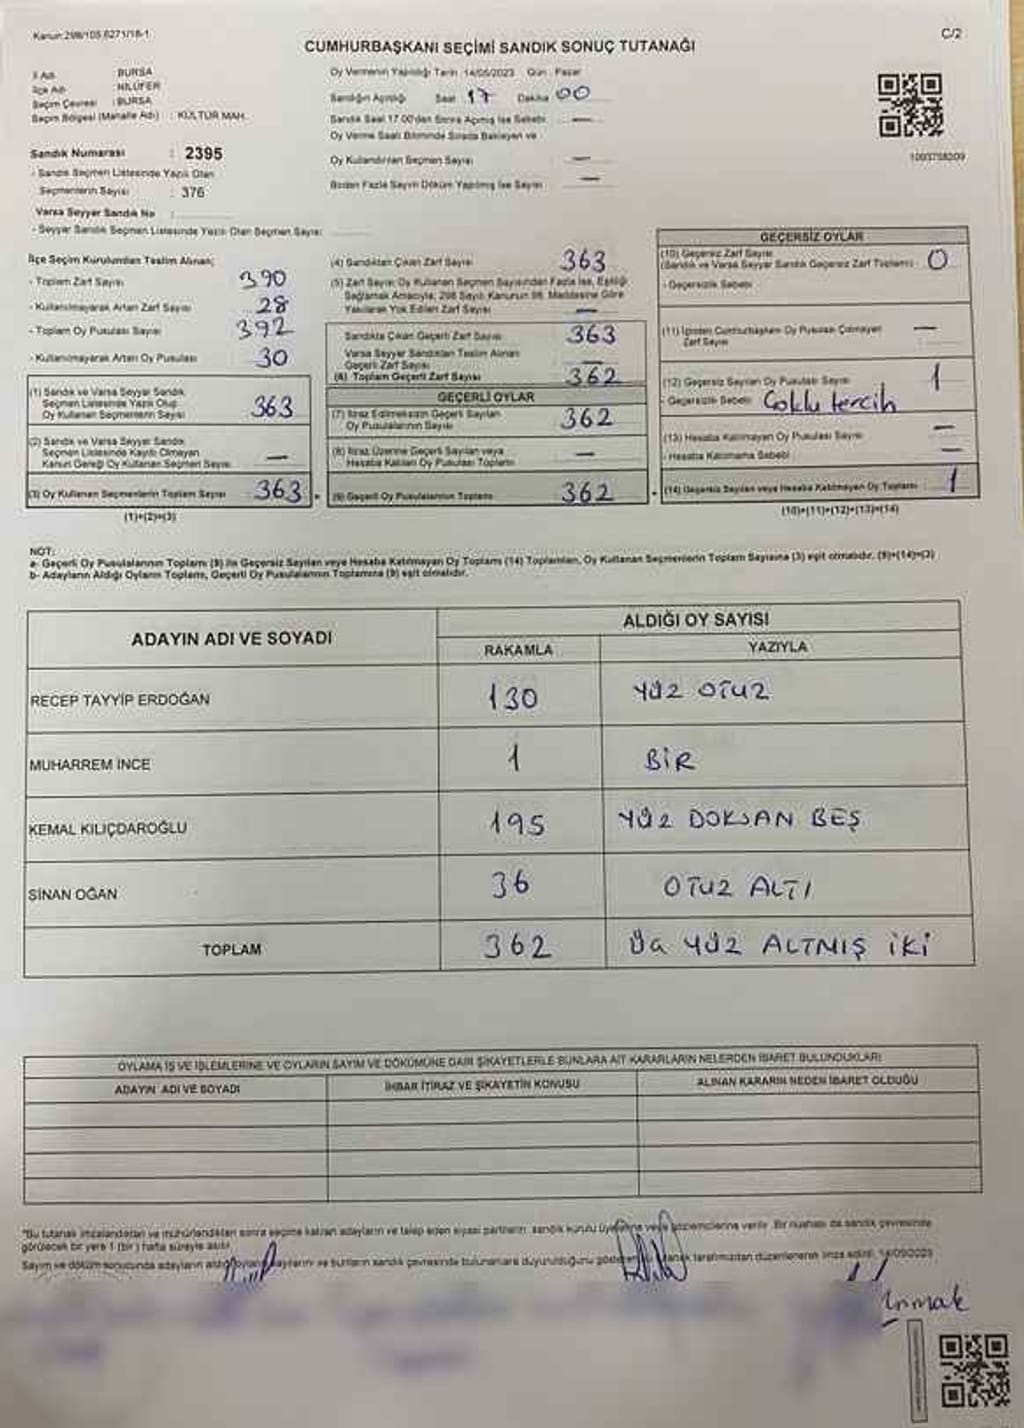 Kanun:298/105.6271/18-1
C/2
CUMHURBAŞKANI SEÇİMİ SANDIK SONUÇ TUTANAĞI
İl Adı : BURSA
İlçe Adı : NİLÜFER
Seçim Çevresi : BURSA
Seçim Bölgesi (Mahalle Adı) : KÜLTÜR MAH.
Sandık Numarası : 2395
- Sandık Seçmen Listesinde Yazılı Olan
Seçmenlerin Sayısı : 376
Varsa Seyyar Sandık No :
- Seyyar Sandık Seçmen Listesinde Yazılı Olan Seçmen Sayısı
Oy Vermenin Yapıldığı Tarih :14/05/2023 Gün : Pazar
Sandığın Açıldığı Saat 17 Dakika 00
Sandık Saat 17.00'dan Sonra Açılmış İse Sebebi —
Oy Verme Saati Bitiminde Sırada Bekleyen ve
Oy Kullandırılan Seçmen Sayısı —
Birden Fazla Sayım Döküm Yapılmış İse Sayısı —
1003758209
İlçe Seçim Kurulundan Teslim Alınan;
- Toplam Zarf Sayısı 390
- Kullanılmayarak Artan Zarf Sayısı 28
- Toplam Oy Pusulası Sayısı 392
- Kullanılmayarak Artan Oy Pusulası 30
(1) Sandık ve Varsa Seyyar Sandık
Seçmen Listesinde Yazılı Olup
Oy Kullanan Seçmenlerin Sayısı 363
(2) Sandık ve Varsa Seyyar Sandık
Seçmen Listesinde Kayıtlı Olmayan
Kanun Gereği Oy Kullanan Seçmen Sayısı —
(3) Oy Kullanan Seçmenlerin Toplam Sayısı 363
(1)+(2)=(3)
(4) Sandıktan Çıkan Zarf Sayısı 363
(5) Zarf Sayısı Oy Kullanan Seçmen Sayısından Fazla İse, Eşitliği
Sağlamak Amacıyla, 298 Sayılı Kanunun 98. Maddesine Göre
Yakılarak Yok Edilen Zarf Sayısı —
Sandıkta Çıkan Geçerli Zarf Sayısı 363
Varsa Seyyar Sandıktan Teslim Alınan
Geçerli Zarf Sayısı —
(6) Toplam Geçerli Zarf Sayısı 362
GEÇERLİ OYLAR
(7) İtiraz Edilmeksizin Geçerli Sayılan
Oy Pusulalarının Sayısı 362
(8) İtiraz Üzerine Geçerli Sayılan veya
Hesaba Katılan Oy Pusulası Toplamı —
(9) Geçerli Oy Pusulalarının Toplamı 362
GEÇERSİZ OYLAR
(10) Geçersiz Zarf Sayısı
(Sandık ve Varsa Seyyar Sandık Geçersiz Zarf Toplamı) 0
- Geçersizlik Sebebi
(11) İçinden Cumhurbaşkanı Oy Pusulası Çıkmayan
Zarf Sayısı —
(12) Geçersiz Sayılan Oy Pusulası Sayısı 1
- Geçersizlik Sebebi Çoklu tercih
(13) Hesaba Katılmayan Oy Pusulası Sayısı —
- Hesaba Katılmama Sebebi —
(14) Geçersiz Sayılan veya Hesaba Katılmayan Oy Toplamı 1
(10)+(11)+(12)+(13)=(14)
NOT:
a- Geçerli Oy Pusulalarının Toplamı (9) ile Geçersiz Sayılan veya Hesaba Katılmayan Oy Toplamı (14) Toplamları, Oy Kullanan Seçmenlerin Toplam Sayısına (3) eşit olmalıdır. (9)+(14)=(3)
b- Adayların Aldığı Oyların Toplamı, Geçerli Oy Pusulalarının Toplamına (9) eşit olmalıdır.
ADAYIN ADI VE SOYADI ALDIĞI OY SAYISI
RAKAMLA YAZIYLA
RECEP TAYYİP ERDOĞAN 130 YÜZ OTUZ
MUHARREM İNCE 1 BİR
KEMAL KILIÇDAROĞLU 195 YÜZ DOKSAN BEŞ
SİNAN OĞAN 36 OTUZ ALTI
TOPLAM 362 ÜÇ YÜZ ALTMIŞ İKİ
OYLAMA İŞ VE İŞLEMLERİNE VE OYLARIN SAYIM VE DÖKÜMÜNE DAİR ŞİKAYETLERLE BUNLARA AİT KARARLARIN NELERDEN İBARET BULUNDUKLARI
ADAYIN ADI VE SOYADI İHBAR İTİRAZ VE ŞİKAYETİN KONUSU ALINAN KARARIN NEDEN İBARET OLDUĞU
*Bu tutanak imzalandıktan ve mühürlendikten sonra seçime katılan adayların ve talep eden siyasi partilerin sandık kurulu üyelerine veya gözlemcilerine verilir. Bir nüshası da sandık çevresinde
görülecek bir yere 1 (bir) hafta süreyle asılır.
Sayım ve döküm sonucunda adayların aldığı oyların sayılarını ve bunların sandık çevresinde bulunanlara duyurulduğunu gösteren tutanak tarafımızdan düzenlenerek imza edildi. 14/05/2023